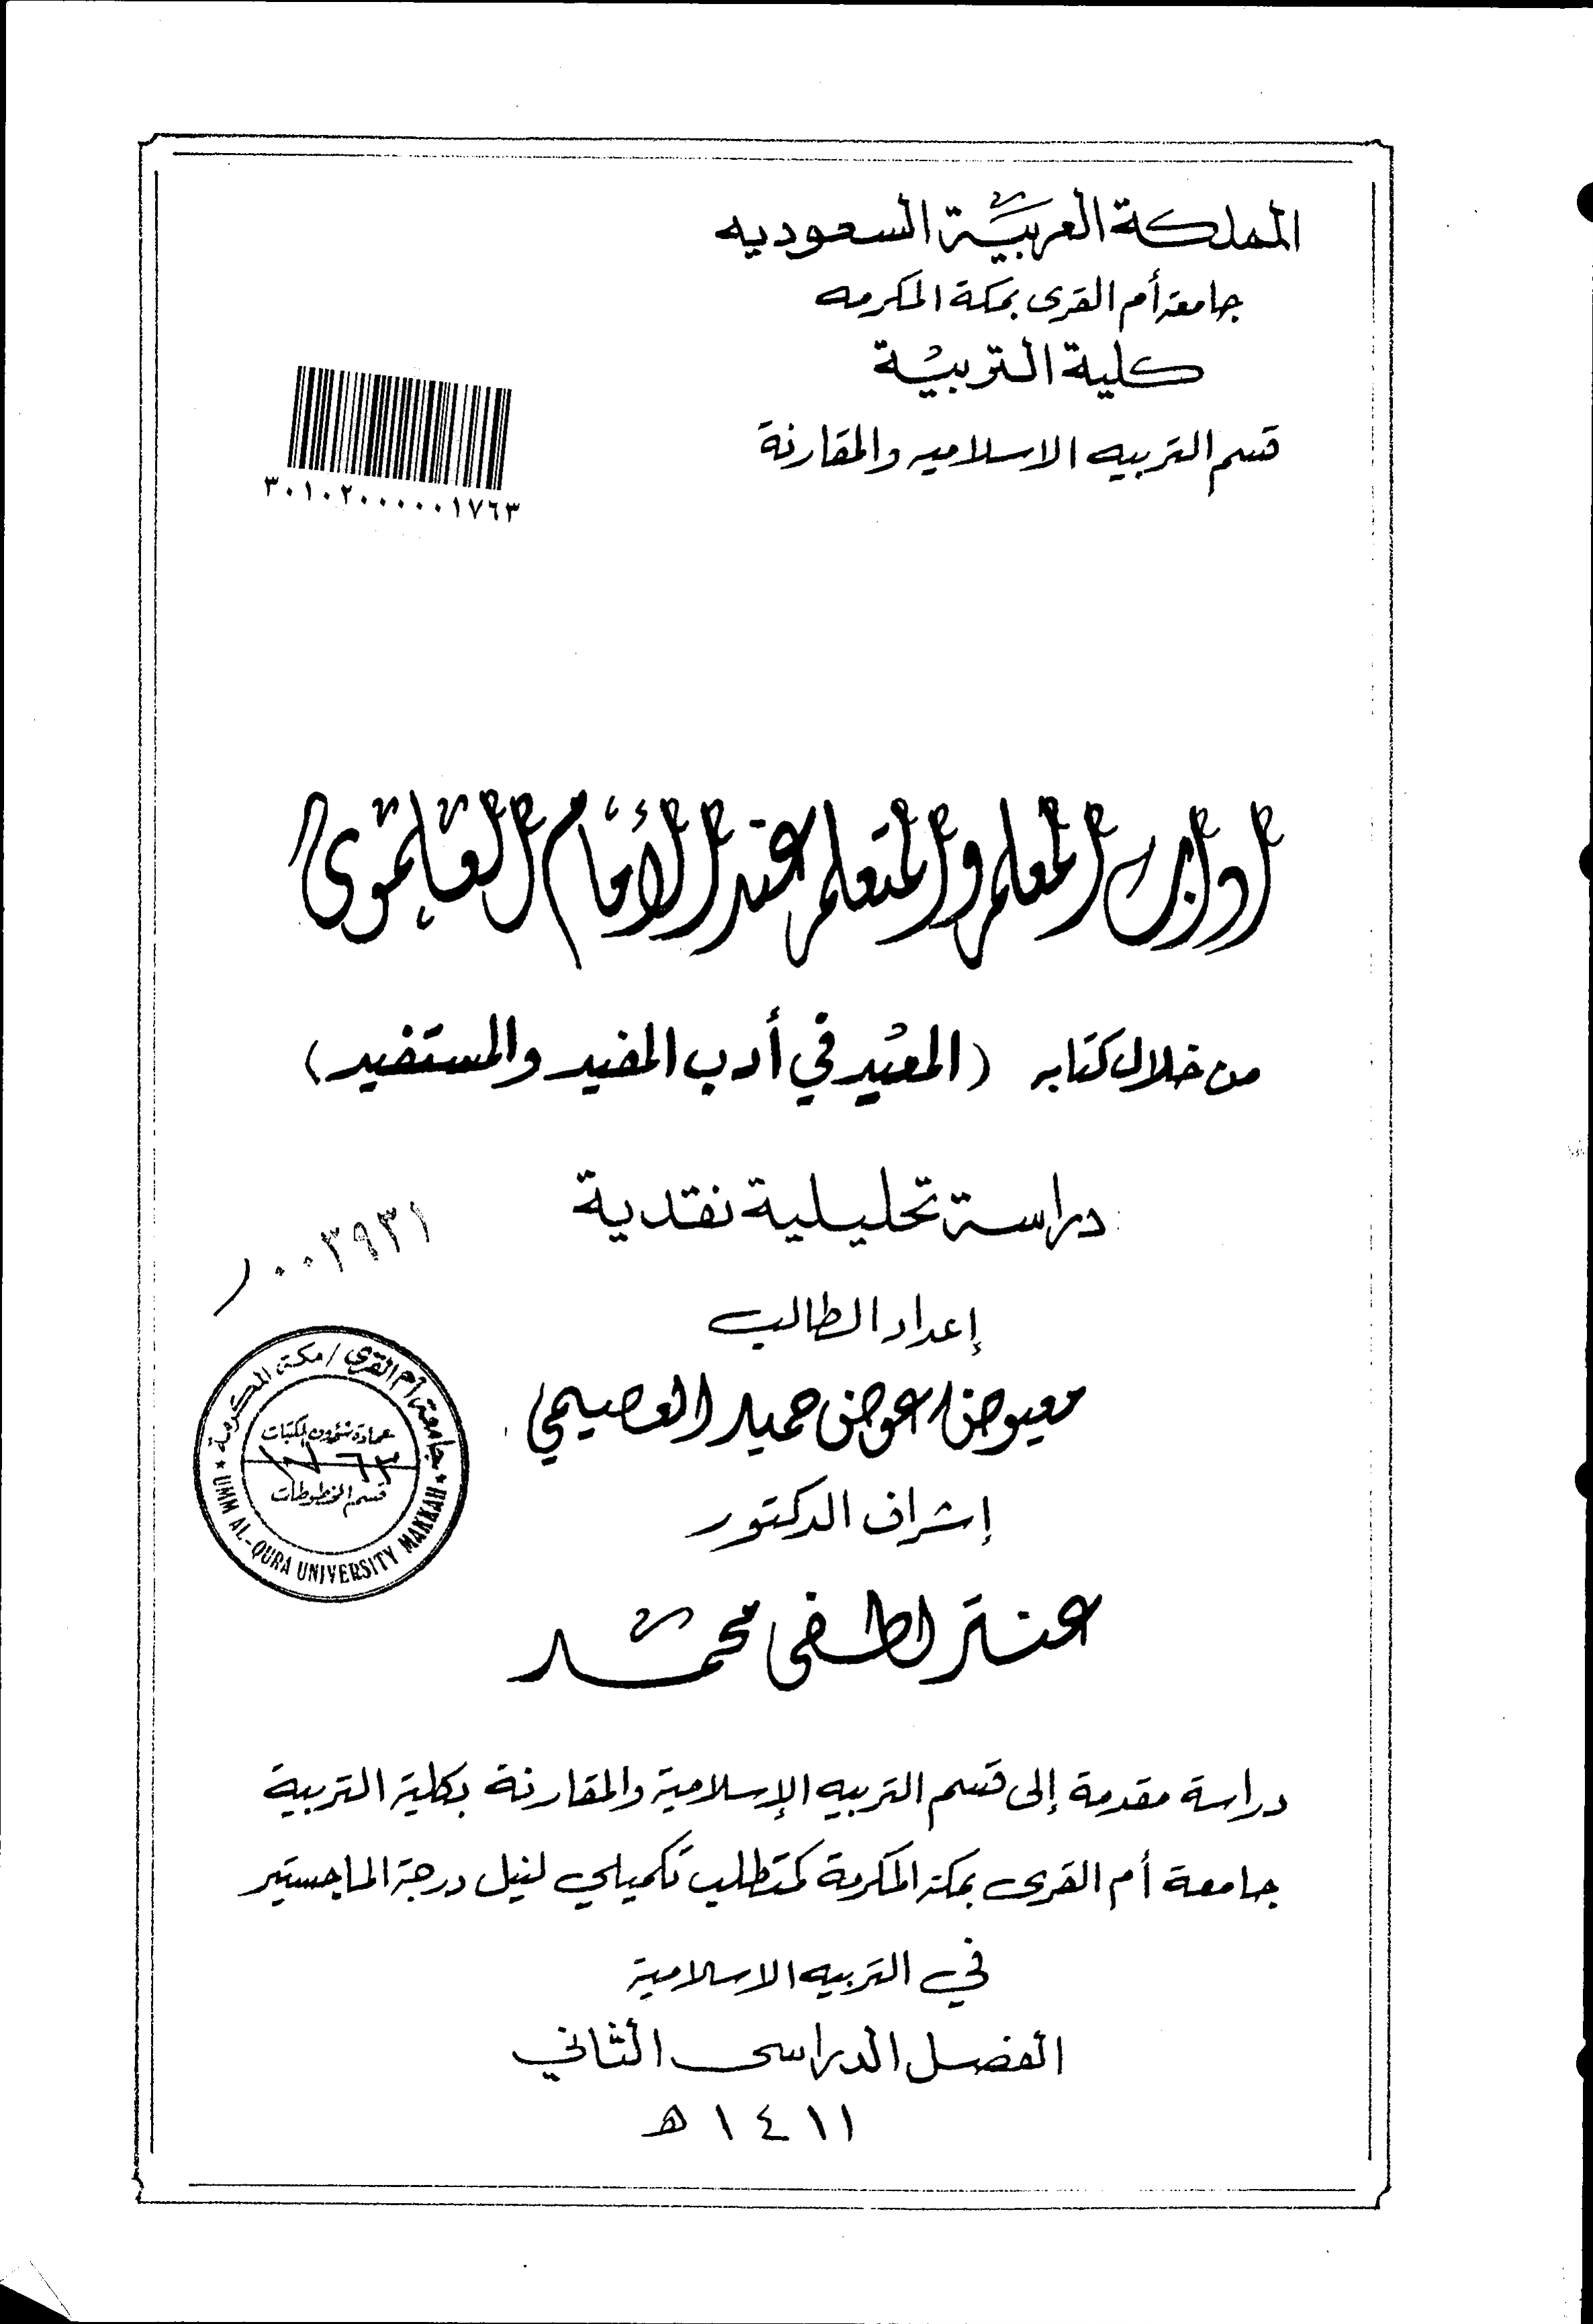 المملكة العربية السعوديه
جامعة أم القرى بمكة المكرمه
كلية التربية
قسم التربيه الاسلاميه والمقارنة
٣٠١٠٢٠٠٠٠٠١٧٦٣
آداب المعلم والمتعلم عند الأمام العلموي
من خلال كتابه (المعيد في أدب المفيد والمستفيد)
دراسة تحليلية نقدية
٠٠٣٩٣١
إعداد الطالب
معيوض عوض حميد العصيمي
جامعة أم القرى / مكة المكرمة
عمادة شؤون المكتبات
١٧٦٣
قسم المخطوطات
UMM AL-QURA UNIVERSITY MAKKAH
إشراف الدكتور
عنتر لطفى محمد
دراسة مقدمة إلى قسم التربيه الإسلامية والمقارنة بكلية التربية
جامعة أم القرى بمكة المكرمة كمتطلب تكميلي لنيل درجة الماجستير
في التربيه الاسلامية
الفصل الدراسى الثاني
١٤١١ هـ